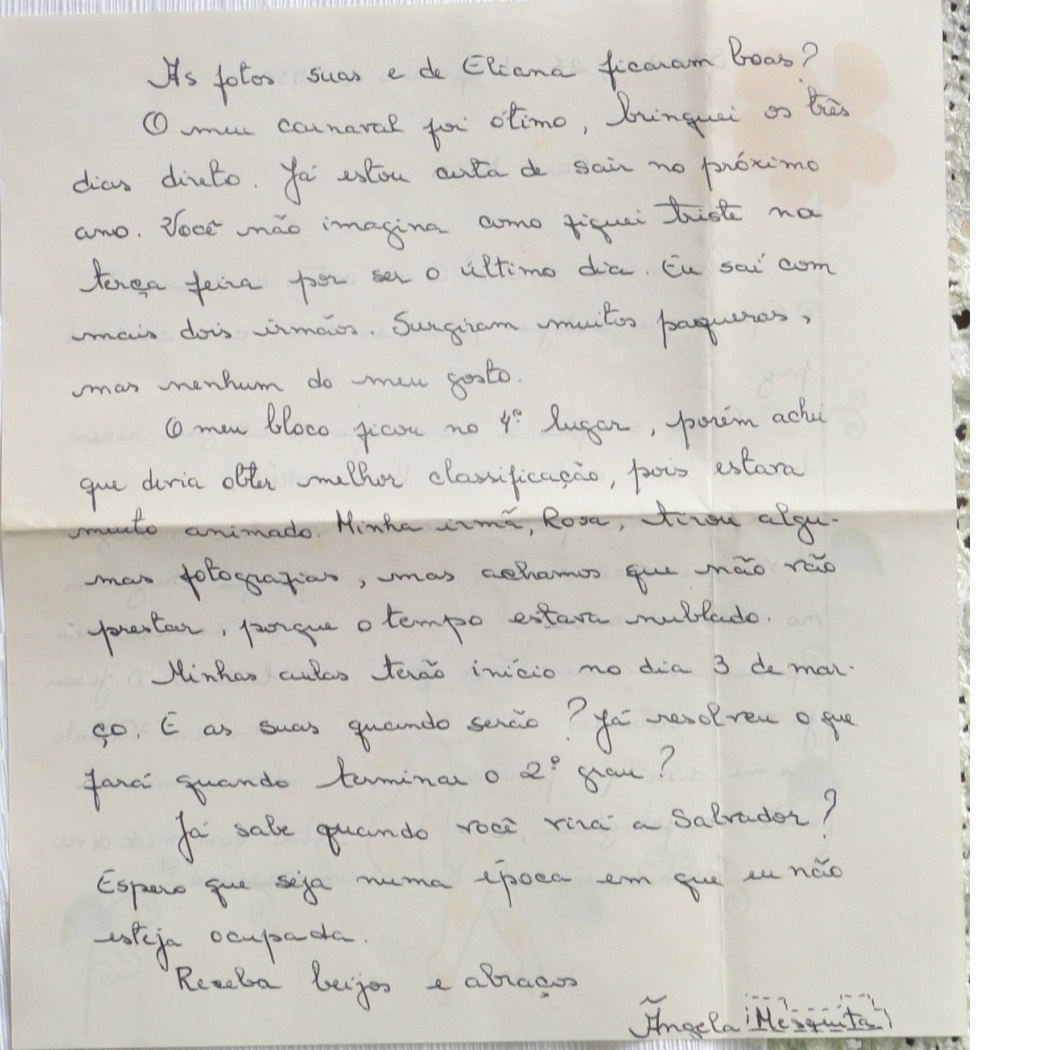 As fotos suas e de Eliana ficaram boas?
O meu carnaval foi ótimo, brinquei os três
dias direto. Já estou certa de sair no próximo
ano. Você não imagina como fiquei triste na
terça feira por ser o último dia. Eu saí com
mais dois irmãos. Surgiram muitos paqueras,
mas nenhum do meu gosto.
O meu bloco ficou no 4º lugar, porém achei
que devia obter melhor classificação, pois estava
muito animado. Minha irmã, Rosa, tirou algu-
mas fotografias, mas achamos que não vão
prestar, porque o tempo estava nublado.
Minhas aulas terão início no dia 3 de mar-
ço. E as suas quando serão? Já resolveu o que
fará quando terminar o 2º grau?
Já sabe quando você virá a Salvador?
Espero que seja numa época em que eu não
esteja ocupada.
Receba beijos e abraços
Ângela Mesquita